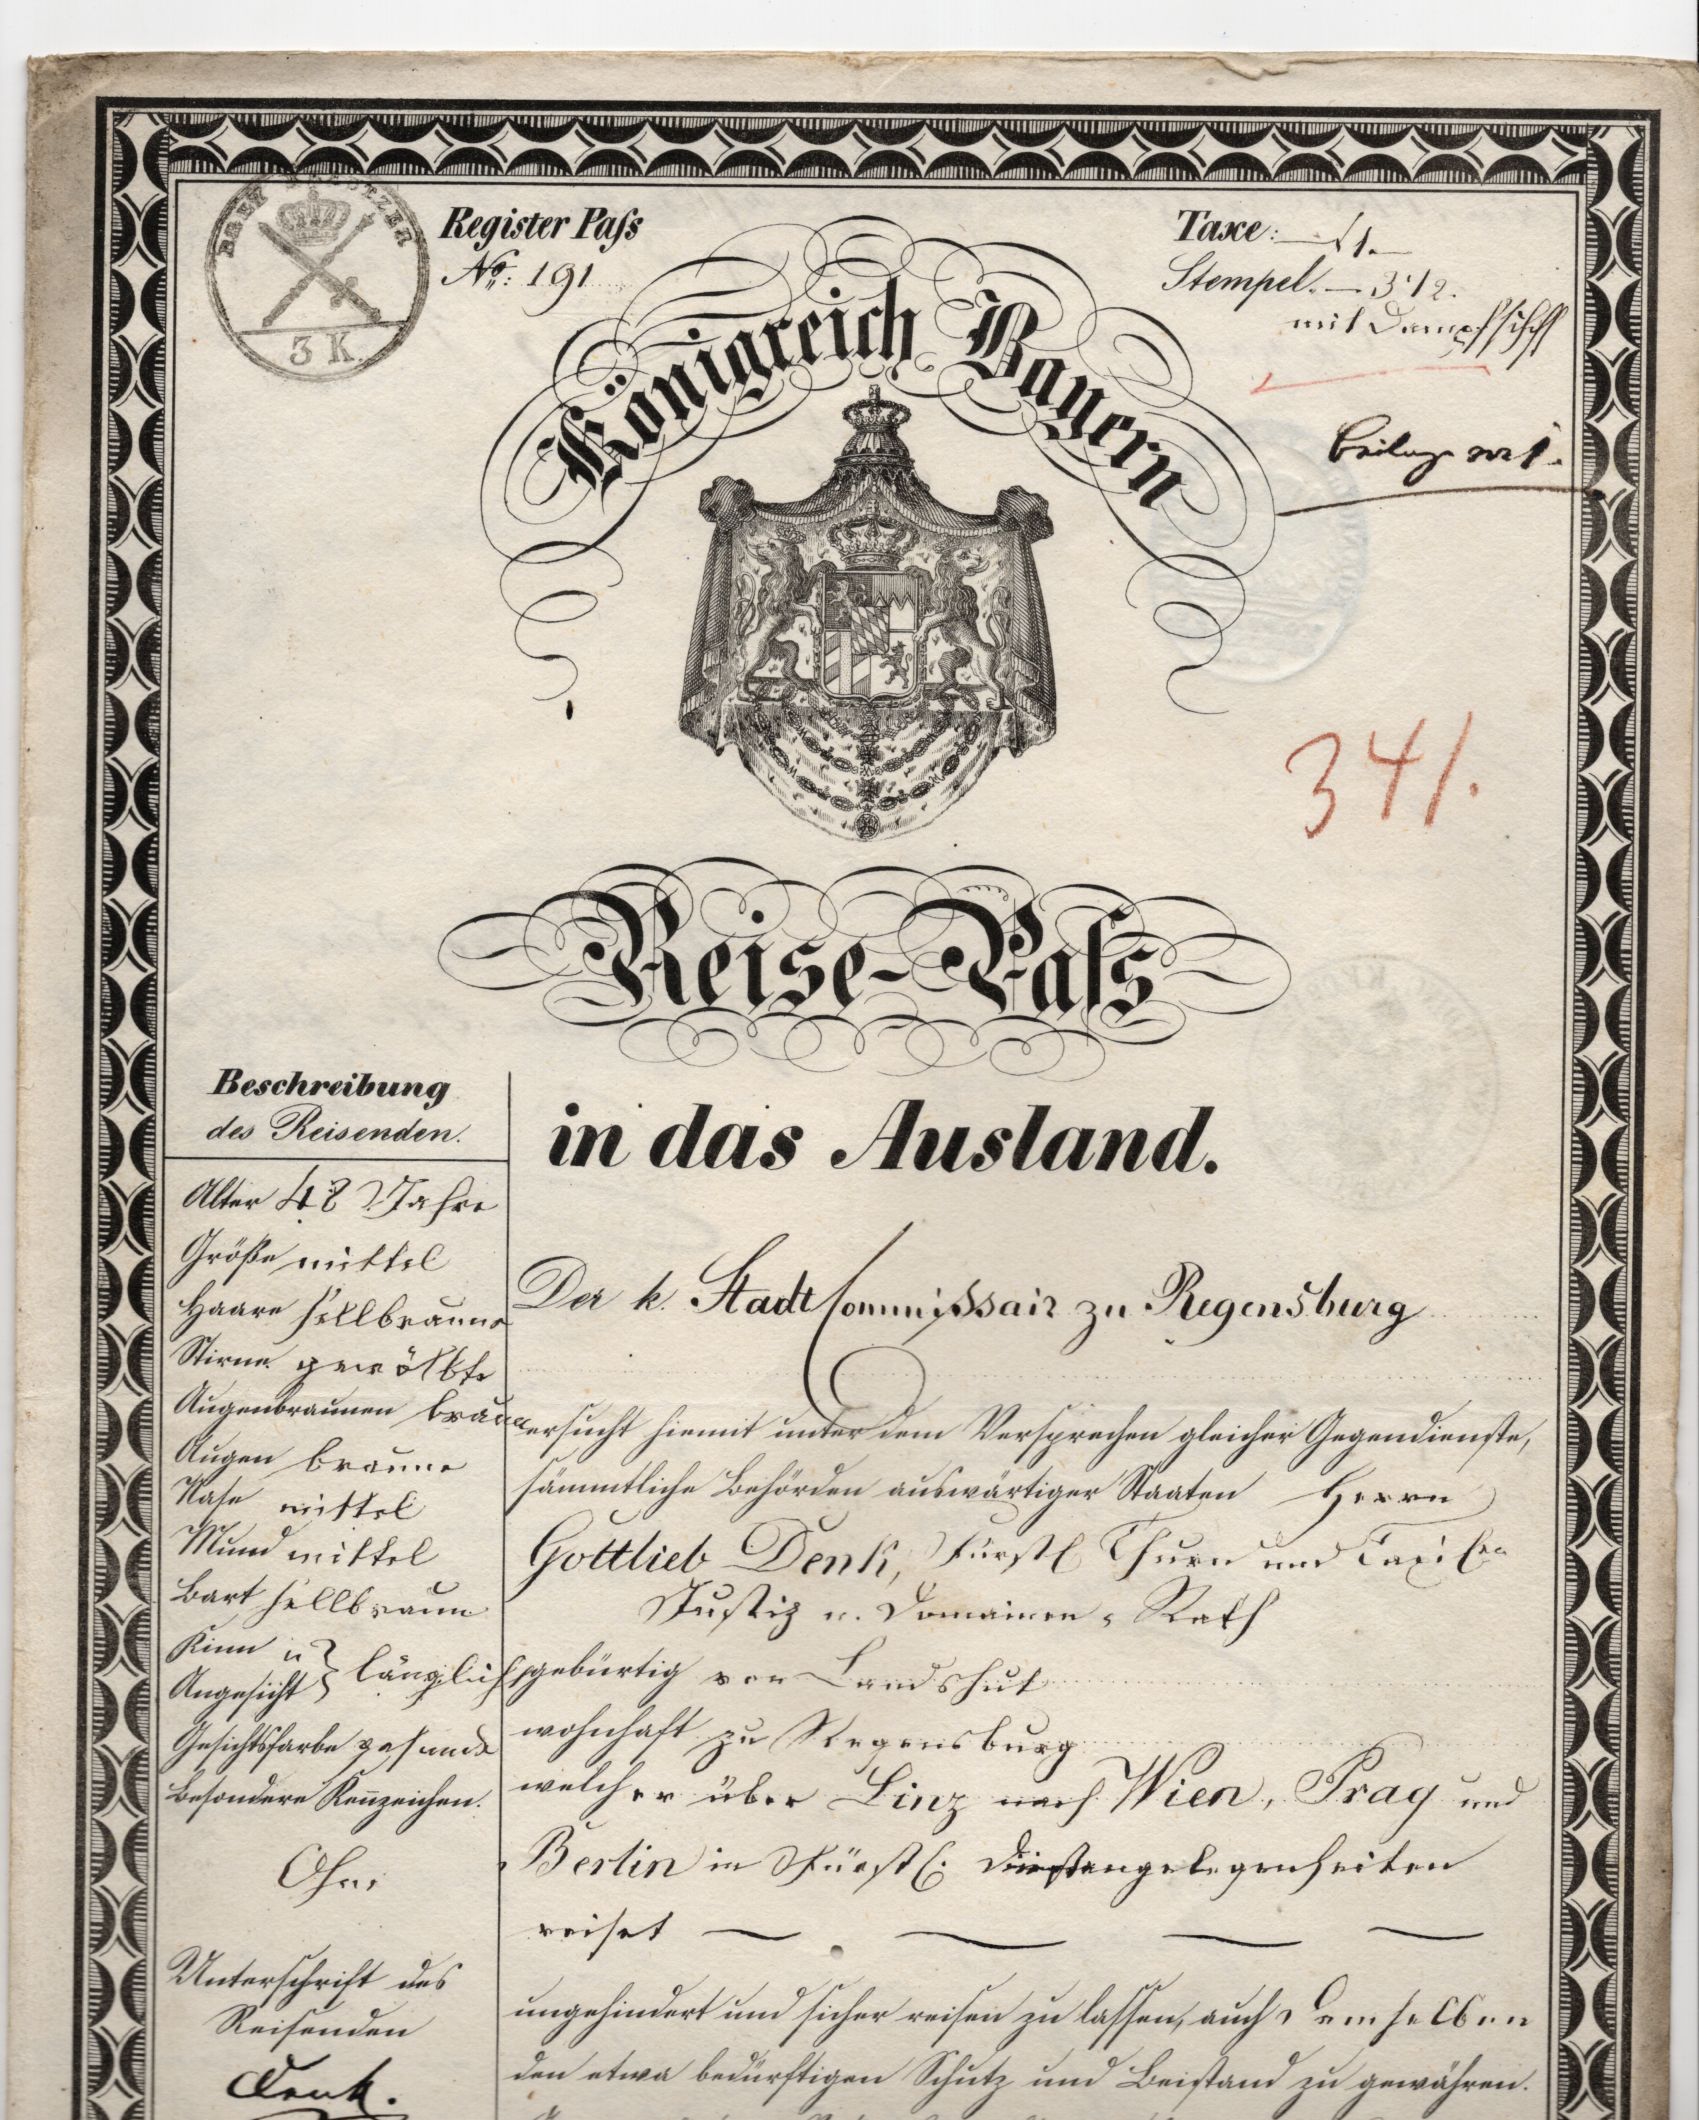 DREY KREUTZER
3 K.
Register Paſs
No: 191
Taxe: — f 1. —
Stempel. — 3 1/2.
mit Dampfschiff
Beilage no 1.
Königreich Bayern
341.
Reise-Paſs
in das Ausland.
Beschreibung
des Reisenden.
Alter 48 Jahre
Größe mittel
Haare hellbraune
Stirne gewölbte
Augenbraunen braune
Augen braune
Nase mittel
Mund mittel
Bart hellbraun
Kinn u
Angesicht } länglich
Gesichtsfarbe gesunde
Besondere Kennzeichen.
Ohne
Unterschrift des
Reisenden
Denk.
Der k. Stadt Commissair zu Regensburg
ersucht hiemit unter dem Versprechen gleicher Gegendienste,
sämmtliche Behörden auswärtiger Staaten Herrn
Gottlieb Denk, Fürstl Thurn und Taxischen
Justiz u. Domainen-Rath
gebürtig von Landshut
wohnhaft zu Regensburg
welcher über Linz nach Wien, Prag und
Berlin in Fürstl. Dienstangelegenheiten
reiset
ungehindert und sicher reisen zu lassen, auch demselben
den etwa bedürftigen Schutz und Beistand zu gewähren.